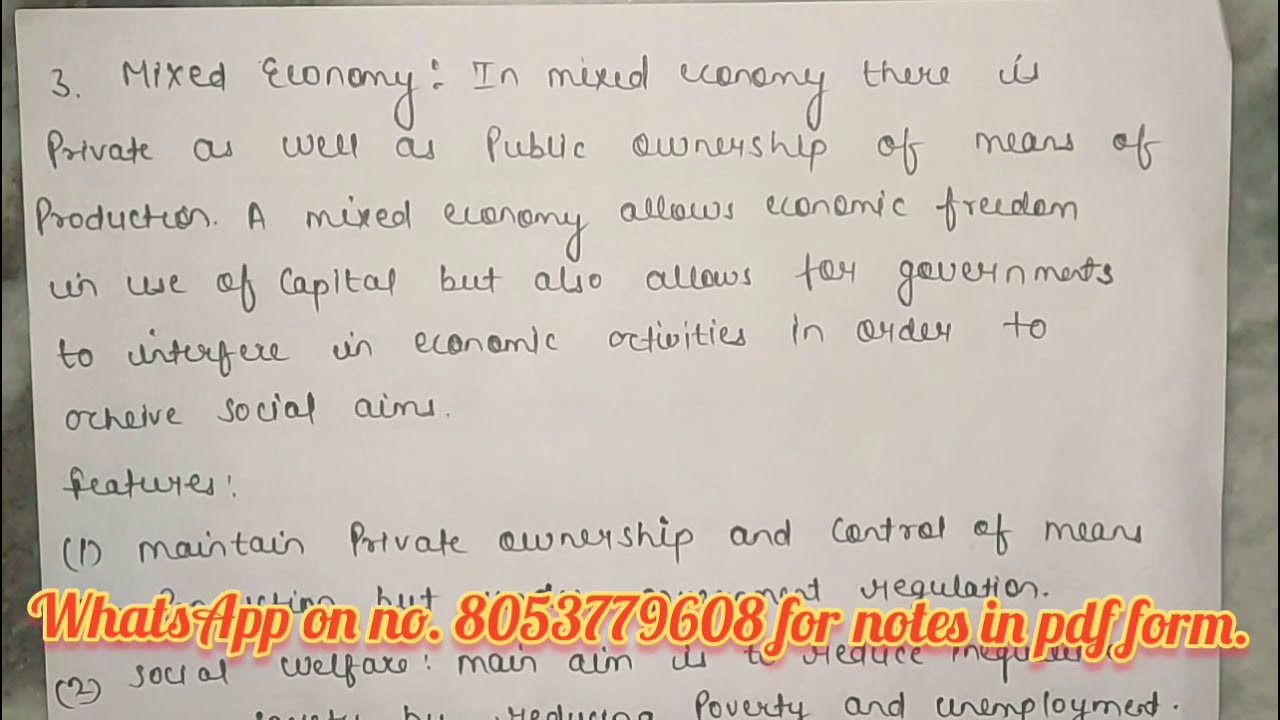 3. Mixed Economy: In mixed economy there is
Private as well as Public ownership of means of
Production. A mixed economy allows economic freedom
in use of Capital but also allows for governments
to interfere in economic activities in order to
acheive social aims.
features:
(1) maintain Private ownership and Control of means
Production but under government regulation.
WhatsApp on no. 8053779608 for notes in pdf form.
(2) social welfare: main aim is to reduce
by reducing Poverty and unemployment.